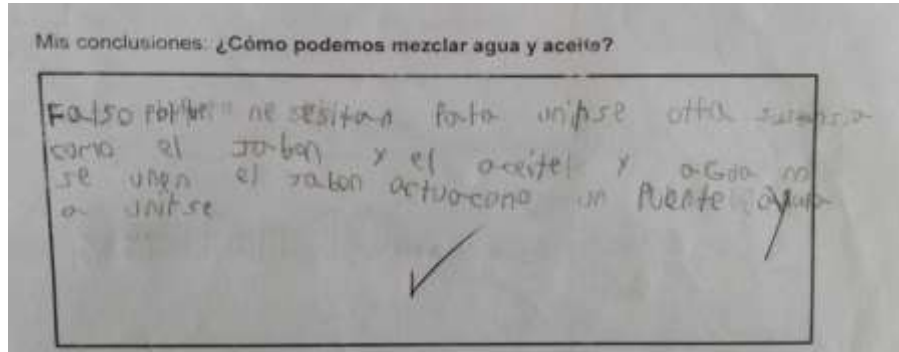 Mis conclusiones: ¿Cómo podemos mezclar agua y aceite?
Falso nesesitan para unirse otra
como el Jabon y el aceitel y agua no
se unen el jabon actuacomo un Puente ayuda
a unirse